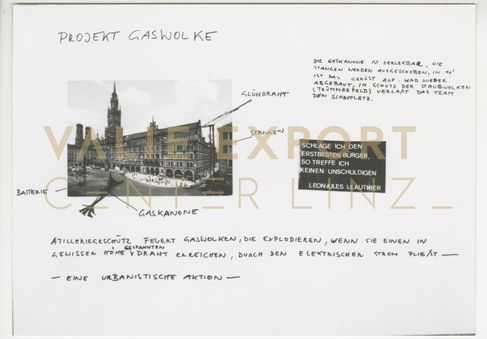 PROJEKT GASWOLKE
DIE GASKANONE IST ZERLEGBAR, DIE
STANGEN WERDEN AUSGESCHOBEN, IN 10'
IST DAS GERÜST AUF- UND WIEDER
ABGEBAUT, IM SCHUTZ DER STAUBWOLKEN
(TRÜMMERFELD) VERLÄßT DAS TEAM
DEN SCHAUPLATZ.
GLÜHDRAHT
STANGEN
VALIE EXPORT
CENTER LINZ_
SCHLAGE ICH DEN
ERSTBESTEN BÜRGER,
SO TREFFE ICH
KEINEN UNSCHULDIGEN
LEON-JULES LEAUTHIER
BATTERIE
GASKANONE
ATILLERIEGESCHÜTZ FEUERT GASWOLKEN, DIE EXPLODIEREN, WENN SIE EINEN IN
GEWISSEN HÖHE GESPANNTEN DRAHT ERREICHEN, DURCH DEN ELEKTRISCHEN STROM FLIEßT —
— EINE URBANISTISCHE AKTION —